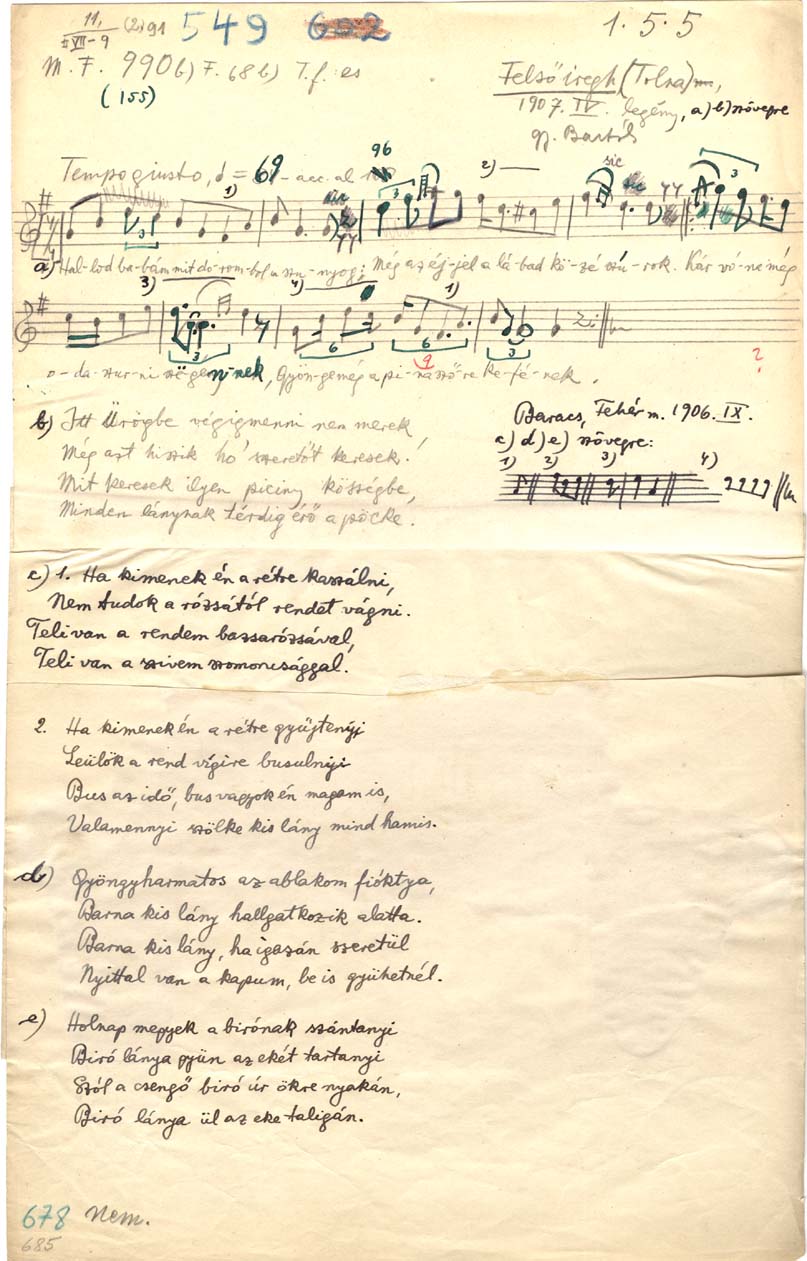 11, (2) 91 549 602 1.5.5
II VII-9
M. F. 990 b) F. 68 b) T.f.: es
(155)
Felsőiregh, (Tolna)m,
1907. IV. legény, a) b) szövegre
gy. Bartók
Tempo giusto, = 69 - acc. al
96
1) 2) sic
a) Hal-lod ba-bám mit do-rom-bol a szu-nyog; Még az éj-jel a lá-bad kö-zé szú-rok. Kár vó-na még
3) 4) 1)
o-da szur-ni szëgenynek, Gyön-ge még a pi-na ször-e ke-fé-nek.
b) Itt Ürögbe végigmenni nem merek
Még azt hiszik ho' szeretőt keresek!
Mit keresek ilyen piciny községbe,
Minden lánynak térdig érő a pöcke.
Baracs, Fehér m. 1906. IX.
c) d) e) szövegre:
1) 2) 3) 4)
c) 1. Ha kimenek én a rétre kaszálni,
Nem tudok a rózsától rendet vágni.
Teli van a rendem bazsarózsával,
Teli van a szivem szomorusággal.
2. Ha kimenek én a rétre gyüjtenyi
Leülök a rend vígire busulnyi
Bus az idő, bus vagyok én magam is,
Valamennyi szölke kis lány mind hamis.
d) Gyöngyharmatos az ablakom fióktya,
Barna kis lány hallgatkozik alatta.
Barna kis lány, ha igazán szeretül
Nyittal van a kapum, be is gyühetnél.
e) Holnap megyek a birónak szántanyi
Biró lánya gyün az ekét tartanyi
Szól a csengő biró úr ökre nyakán,
Biró lánya ül az eke taligán.
678 Nem.
685